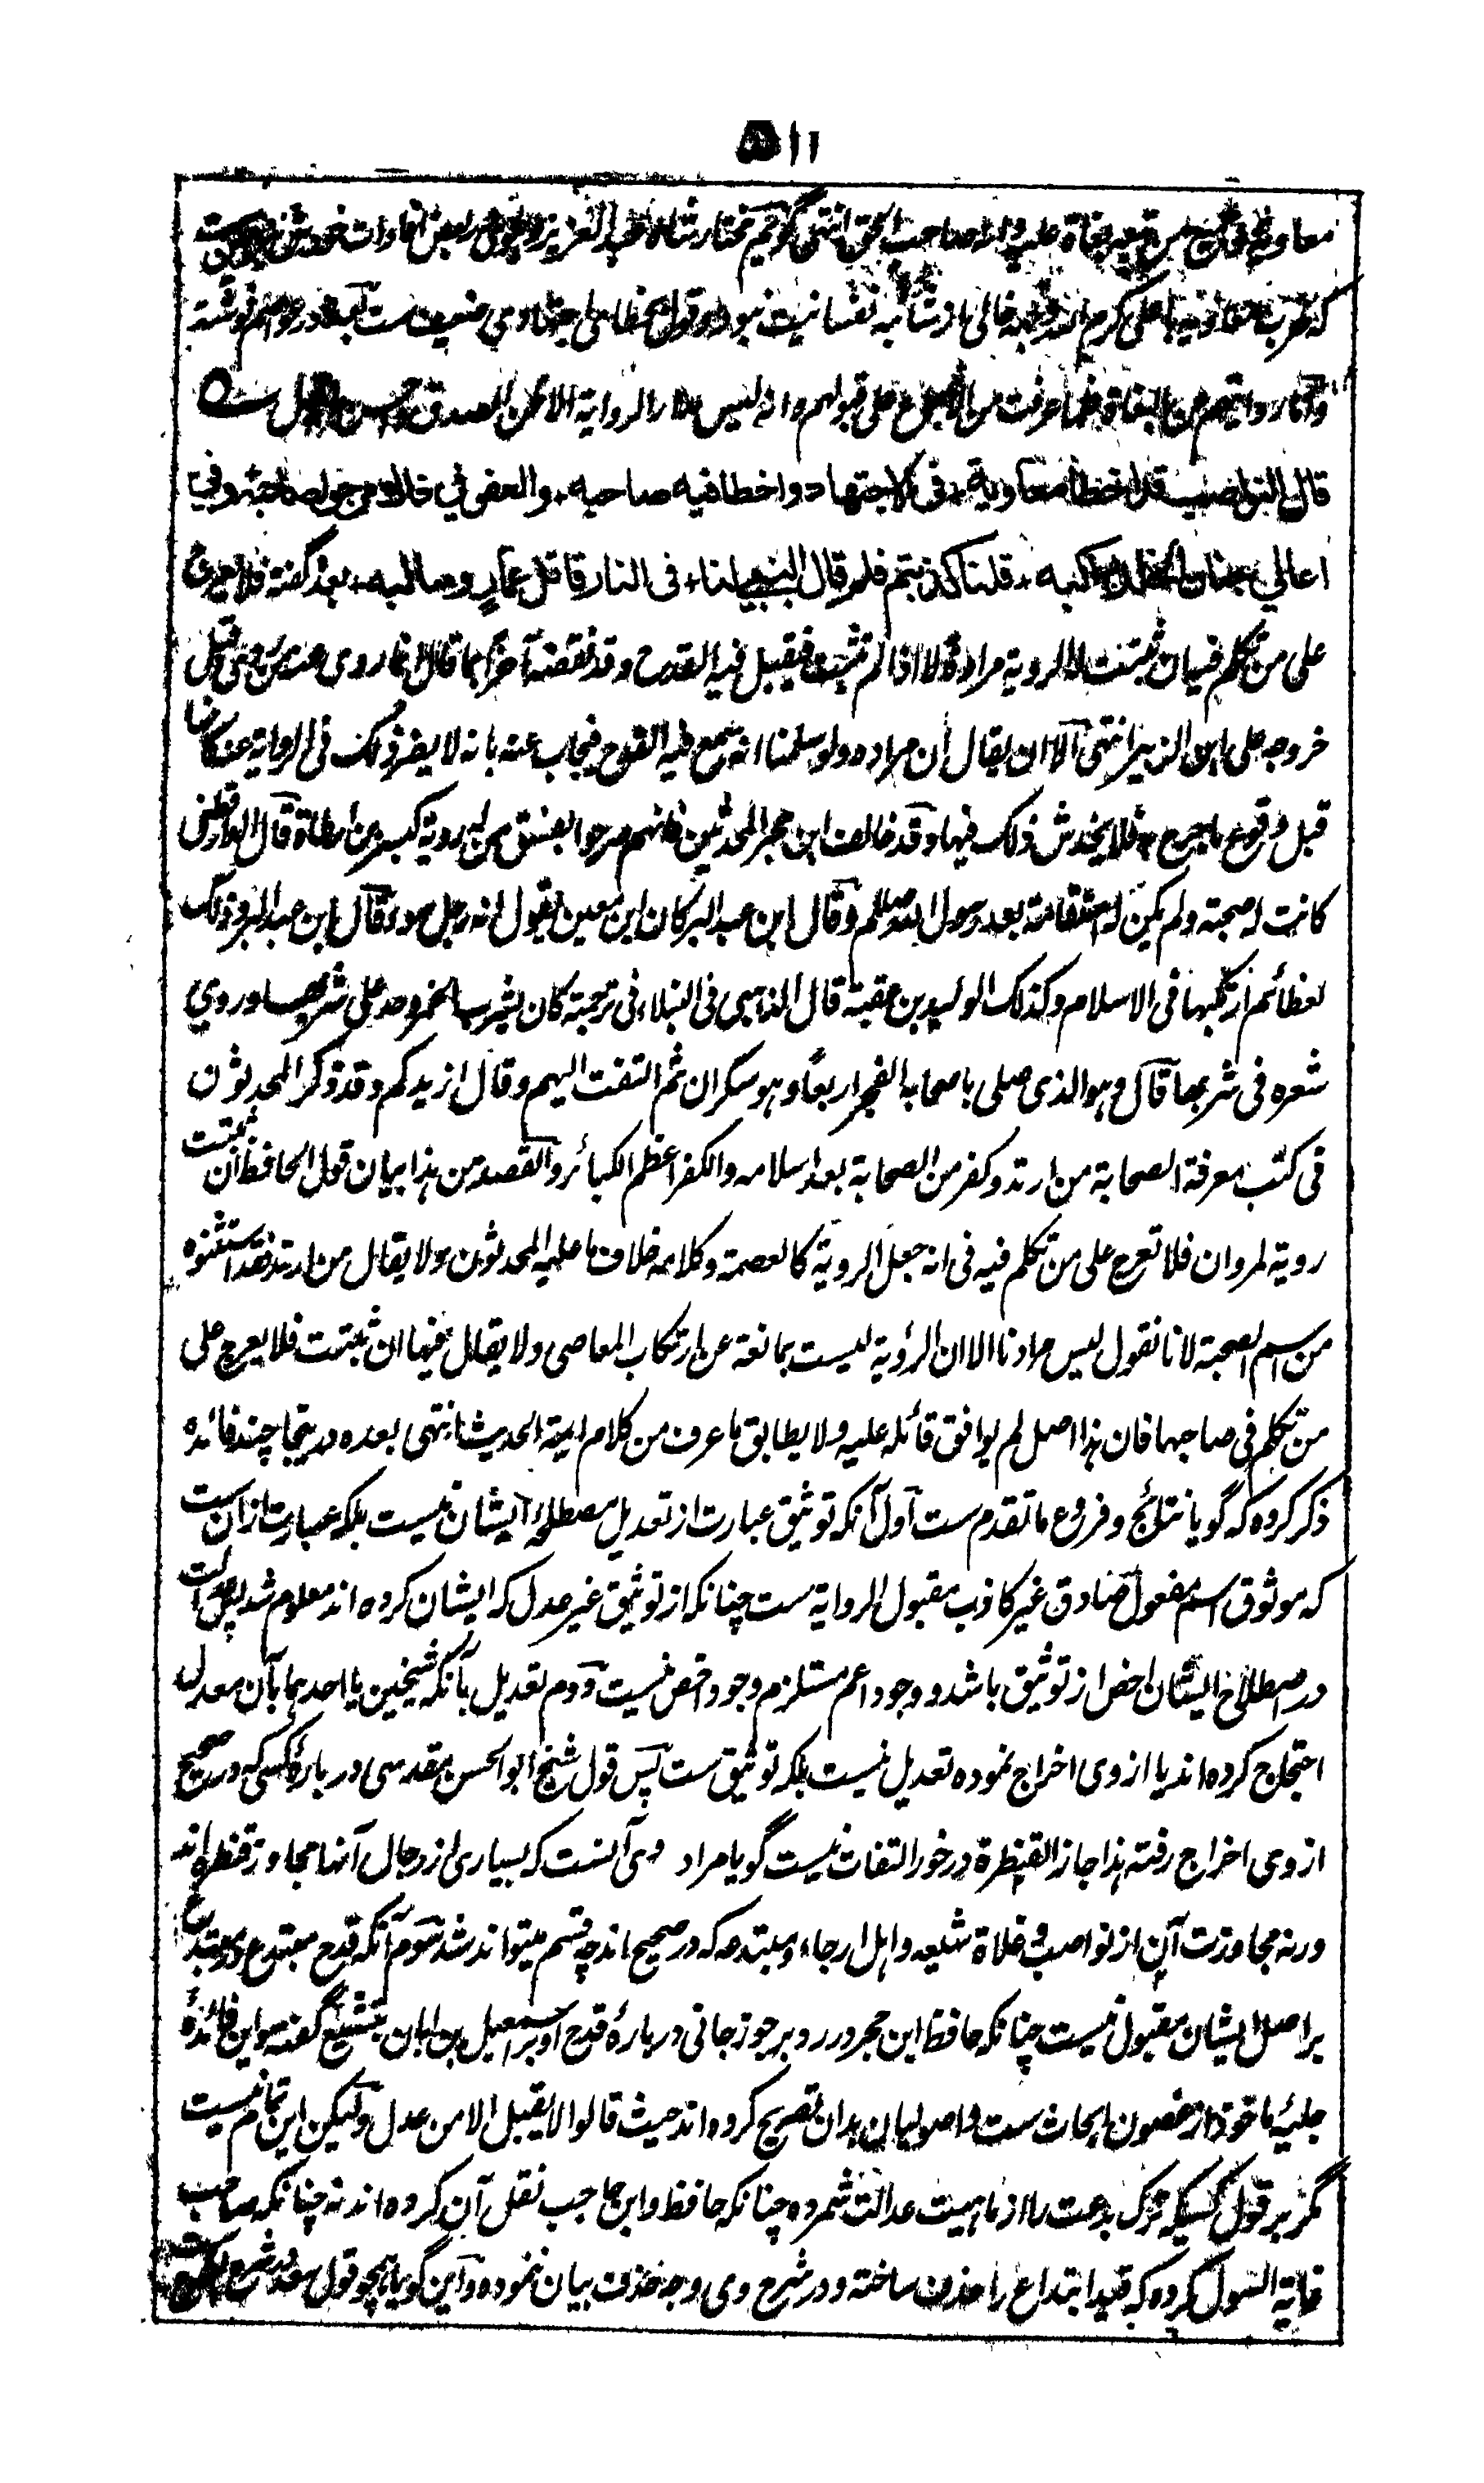 ۵۱۱
معاویه ومن تبعه بغاة علیه والا صاحب الحق انتهی گویم مختار شاه عبد العزیز دهلوی در بعض افادات خود همین ست
که حرب معاویه با علی کرم الله وجهه خالی از شائبه نفسانیت نبود وقول بخطای اجتهادی ضعیف ست
واما روایتهم عن البغاة فلما عرفت من الاجماع علی قبولهم وانه لیس مدار الروایة الا ظن الصدق
قال النواصب قد اخطا معاویة ٭ فی الاجتهاد واخطا فیه صاحبه ٭ والعفو فی ذلک مرجو لصاحبه وفی
اعالی جنان الخلد راکبه ٭ قلنا کذبتم فلم قال النبی لنا ٭ فی النار قاتل عمار وسالبه ٭ بعده گفته فلا یعرج
علی من تکلم فیه ان ثبتت الرویة مراده لا اذا لم تثبت فیقبل فیه القدح وقد نقضه آخرا بما قال انما روی عنه من روی قبل
خروجه علی ابن الزبیر انتهی الا ان یقال ان مراده ولو سلمنا انه یسمع فیه القدح فیجاب عنه بانه لا یضر ذلک فی الروایة عنه لانها
قبل وقوع ما جرح به فلا یخدش ذلک فیها وقد خالف ابن حجر المحدثین فانهم صرحوا بفسق من له رویة کبسر بن ارطاة قال الدارقطنی
کانت له صحبة ولم یکن له استقامة بعد رسول الله صلعم وقال ابن عبد البر کان ابن معین یقول انه رجل سوء قال ابن عبد البر وذلک
لعظائم ارتکبها فی الاسلام وکذلک الولید بن عقبة قال الذهبی فی النبلاء فی ترجمته کان یشرب الخمر وحد علی شربها وروی
شعره فی شربها قال وهو الذی صلی باصحابه الفجر اربعا وهو سکران ثم التفت الیهم وقال ازیدکم وقد ذکر المحدثون
فی کتب معرفة الصحابة من ارتد وکفر من الصحابة بعد اسلامه والکفر اعظم الکبائر والقصد من هذا بیان قول الحافظ ان ثبتت
رویة لمروان فلا تعرج علی من تکلم فیه فی انه جعل الرویة کالعصمة وکلامه خلاف ما علیه المحدثون ولا یقال من ارتد فقد استثنوه
من اسم الصحبة لانا نقول لیس مرادنا الا ان الرؤیة لیست بمانعة عن ارتکاب المعاصی ولا یقال فیها ان ثبتت فلا یعرج علی
من تکلم فی صاحبها فان هذا اصل لم یوافق قائله علیه ولا یطابق ما عرف من کلام ایمة الحدیث انتهی بعده درینجا چند فائده
ذکر کرده که گویا نتائج وفروع ما تقدم ست اول آنکه توثیق عبارت از تعدیل مصطلح ایشان نیست بلکه عبارت ازان ست
که موثوق اسم مفعول صادق غیر کاذب مقبول الروایة ست چنانکه از توثیق غیر عدل که ایشان کرده اند معلوم شد پس عدالت
در اصطلاح ایشان اخص از توثیق باشد ووجود اعم مستلزم وجود اخص نیست ودوم تعدیل بآنکه شیخین یا احدهما بآن معدل
احتجاج کرده اند یا از وی اخراج نموده تعدیل نیست بلکه توثیق ست پس قول شیخ ابو الحسن مقدسی در باره کسی که در صحیح
از وی اخراج رفته هذا جاز القنطرة در خور التفات نیست گویا مراد وی آنست که بسیاری از رجال آنها مجاوز قنطره اند
ورنه مجاوزت آن از نواصب وغلاة شیعه واهل ارجاء ومبتدعه که در صحیح اند چه قسم میتواند شد سوم آنکه قدح مبتدع در مبتدع
بر اصل ایشان مقبول نیست چنانکه حافظ ابن حجر در رد بر جوزجانی در باره قدح او بر اسمعیل بن ابان بتشیع گفته واین فائدهٔ
جلیه ماخوذ از غضون ابحاث ست واصولیان بدان تصریح کرده اند حیث قالوا لا یقبل الا من عدل ولیکن این تمام نیست
مگر بر قول کسیکه ترک بدعت را از ماهیت عدالت شمرده چنانکه حافظ وابن حاجب نقل آن کرده اند نه چنانکه صاحب
غایة السول کرده که قید ابتداع را حذف ساخته ودر شرح وی وجه حذف بیان نموده واین گویا همچو قول سعد در شرح